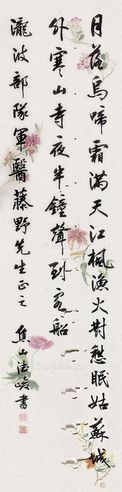 月落烏啼霜滿天江楓漁火對愁眠姑蘇城
外寒山寺夜半鐘聲到客船
瀧波部隊軍醫藤野先生正之 焦山
書